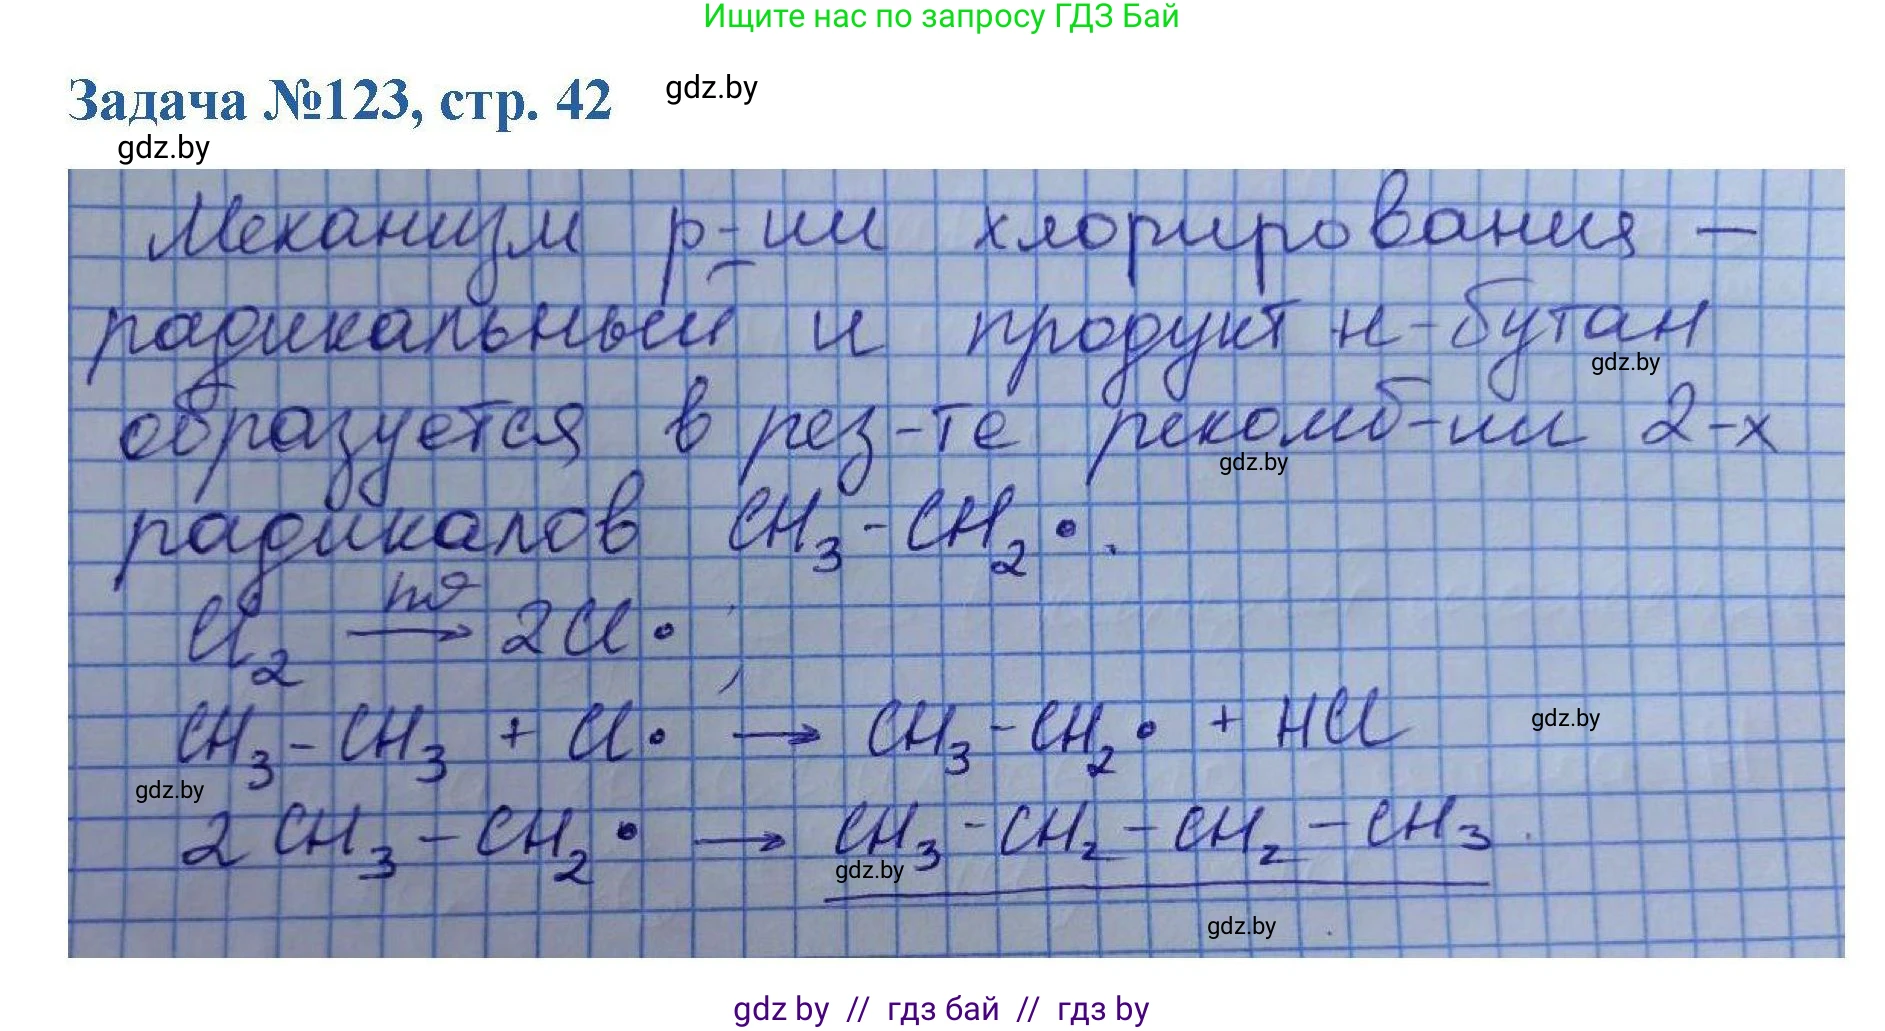 Ищите нас по запросу ГДЗ Бай
Задача №123, стр. 42
gdz.by
gdz.by
Механизм р-ии хлорирования –
радикальный и продукт н-бутан
gdz.by
образуется в рез-те рекомб-ии 2-х
gdz.by
радикалов CH₃-CH₂•.
Cl₂ —hν→ 2Cl•
CH₃-CH₃ + Cl• → CH₃-CH₂• + HCl
gdz.by
gdz.by
2 CH₃-CH₂• → CH₃-CH₂-CH₂-CH₃
gdz.by
gdz.by
gdz by // гдз бай // гдз by